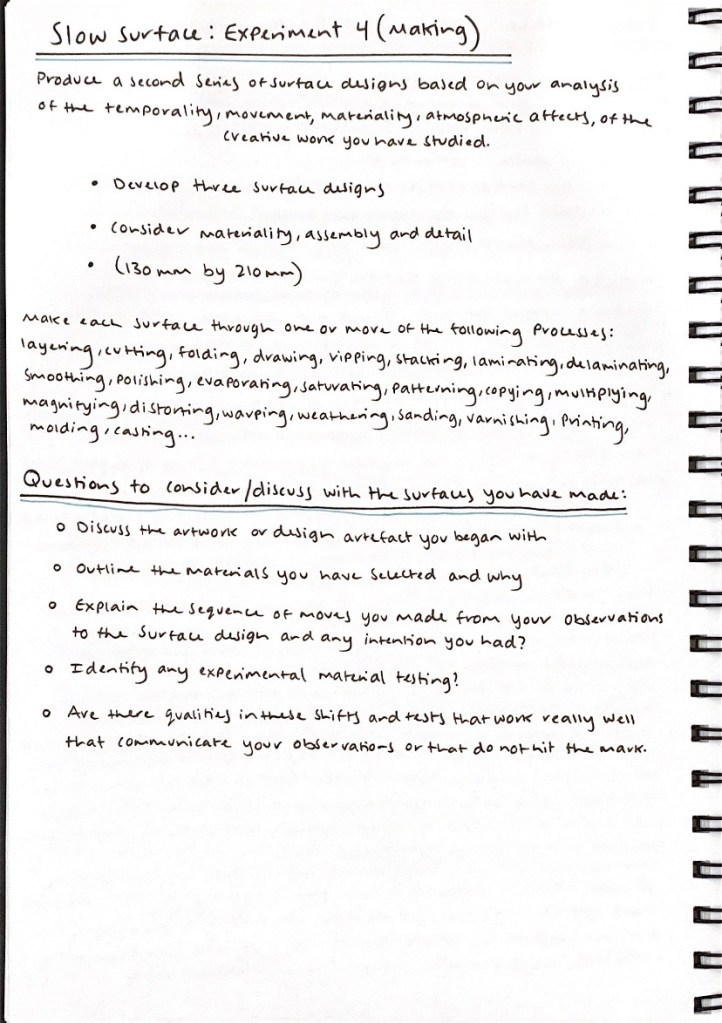 Slow Surface: Experiment 4 (Making)
Produce a second series of surface designs based on your analysis
of the temporality, movement, materiality, atmospheric affects, of the
creative work you have studied.
• Develop three surface designs
• consider materiality, assembly and detail
• (130mm by 210mm)
Make each surface through one or more of the following processes:
layering, cutting, folding, drawing, ripping, stacking, laminating, delaminating,
smoothing, polishing, evaporating, saturating, patterning, copying, multiplying,
magnifying, distorting, warping, weathering, sanding, varnishing, printing,
molding, casting...
Questions to consider/discuss with the surfaces you have made:
o Discuss the artwork or design artefact you began with
o Outline the materials you have selected and why
o Explain the sequence of moves you made from your observations
to the surface design and any intention you had?
o Identify any experimental material testing?
o Are there qualities in these shifts and tests that work really well
that communicate your observations or that do not hit the mark.